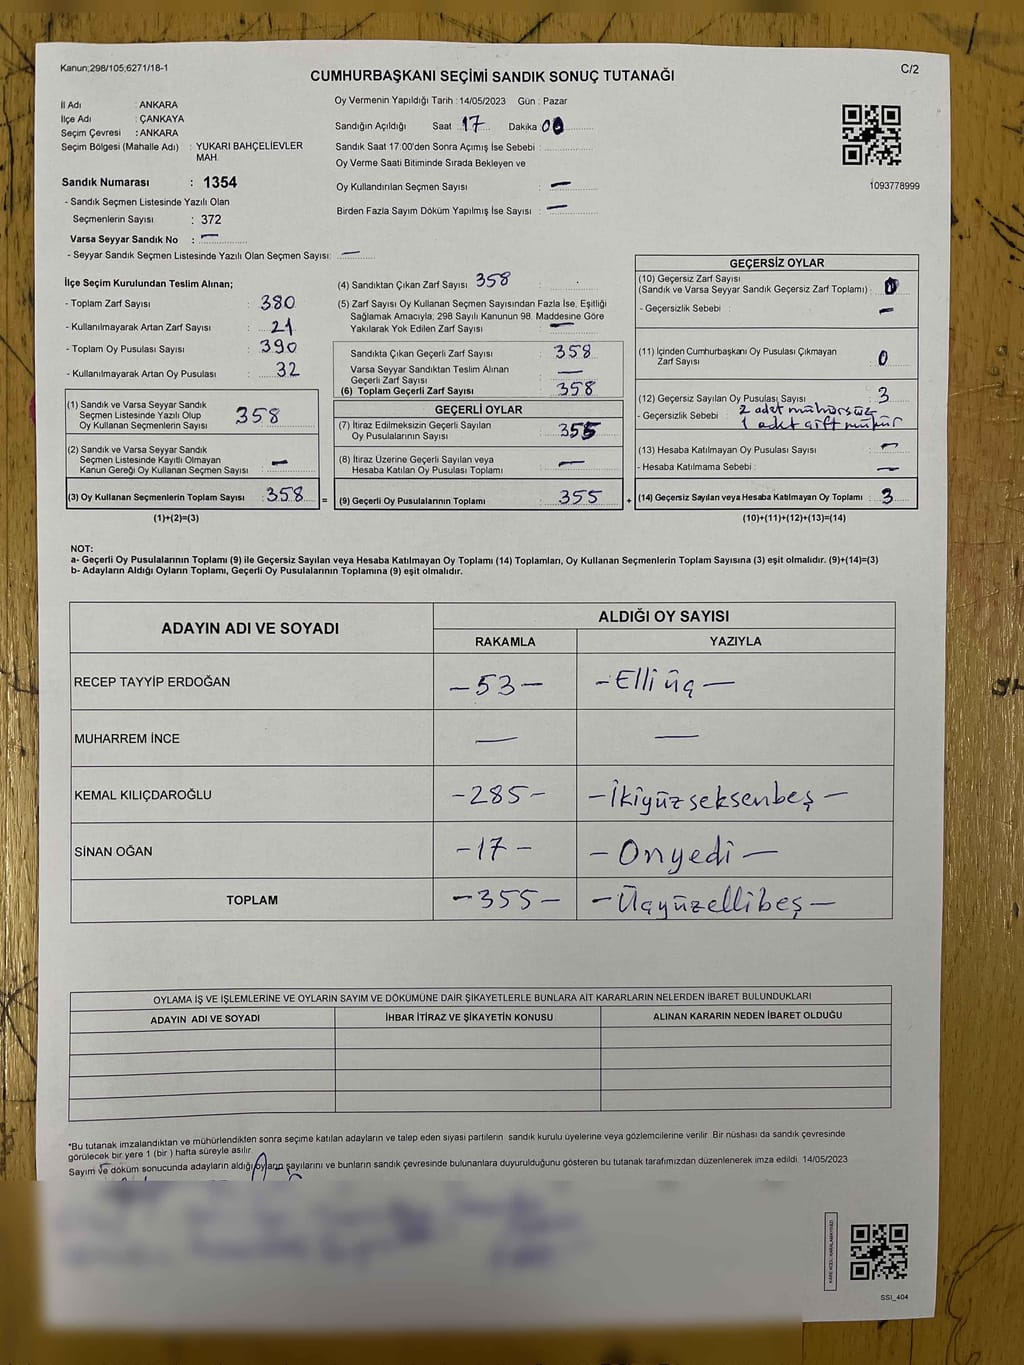 Kanun;298/105,6271/18-1
C/2
CUMHURBAŞKANI SEÇİMİ SANDIK SONUÇ TUTANAĞI
İl Adı : ANKARA
İlçe Adı : ÇANKAYA
Seçim Çevresi : ANKARA
Seçim Bölgesi (Mahalle Adı) : YUKARI BAHÇELİEVLER
MAH.
Sandık Numarası : 1354
- Sandık Seçmen Listesinde Yazılı Olan
Seçmenlerin Sayısı : 372
Varsa Seyyar Sandık No : —
- Seyyar Sandık Seçmen Listesinde Yazılı Olan Seçmen Sayısı: —
Oy Vermenin Yapıldığı Tarih : 14/05/2023 Gün : Pazar
Sandığın Açıldığı Saat 17 Dakika 00
Sandık Saat 17:00'den Sonra Açımış İse Sebebi :
Oy Verme Saati Bitiminde Sırada Bekleyen ve
Oy Kullandırılan Seçmen Sayısı : —
Birden Fazla Sayım Döküm Yapılmış İse Sayısı : —
1093778999
İlçe Seçim Kurulundan Teslim Alınan;
- Toplam Zarf Sayısı : 380
- Kullanılmayarak Artan Zarf Sayısı : 21
- Toplam Oy Pusulası Sayısı : 390
- Kullanılmayarak Artan Oy Pusulası : 32
(1) Sandık ve Varsa Seyyar Sandık
Seçmen Listesinde Yazılı Olup
Oy Kullanan Seçmenlerin Sayısı : 358
(2) Sandık ve Varsa Seyyar Sandık
Seçmen Listesinde Kayıtlı Olmayan
Kanun Gereği Oy Kullanan Seçmen Sayısı : —
(3) Oy Kullanan Seçmenlerin Toplam Sayısı : 358 =
(1)+(2)=(3)
(4) Sandıktan Çıkan Zarf Sayısı : 358
(5) Zarf Sayısı Oy Kullanan Seçmen Sayısından Fazla İse, Eşitliği
Sağlamak Amacıyla; 298 Sayılı Kanunun 98. Maddesine Göre
Yakılarak Yok Edilen Zarf Sayısı : —
Sandıkta Çıkan Geçerli Zarf Sayısı : 358
Varsa Seyyar Sandıktan Teslim Alınan
Geçerli Zarf Sayısı : —
(6) Toplam Geçerli Zarf Sayısı : 358
GEÇERLİ OYLAR
(7) İtiraz Edilmeksizin Geçerli Sayılan
Oy Pusulalarının Sayısı : 355
(8) İtiraz Üzerine Geçerli Sayılan veya
Hesaba Katılan Oy Pusulası Toplamı : —
(9) Geçerli Oy Pusulalarının Toplamı : 355 +
GEÇERSİZ OYLAR
(10) Geçersiz Zarf Sayısı
(Sandık ve Varsa Seyyar Sandık Geçersiz Zarf Toplamı) : 0
- Geçersizlik Sebebi : —
(11) İçinden Cumhurbaşkanı Oy Pusulası Çıkmayan
Zarf Sayısı : 0
(12) Geçersiz Sayılan Oy Pusulası Sayısı : 3
- Geçersizlik Sebebi : 2 adet mühürsüz
1 adet çift mühür
(13) Hesaba Katılmayan Oy Pusulası Sayısı : —
- Hesaba Katılmama Sebebi : —
(14) Geçersiz Sayılan veya Hesaba Katılmayan Oy Toplamı : 3
(10)+(11)+(12)+(13)=(14)
NOT:
a- Geçerli Oy Pusulalarının Toplamı (9) ile Geçersiz Sayılan veya Hesaba Katılmayan Oy Toplamı (14) Toplamları, Oy Kullanan Seçmenlerin Toplam Sayısına (3) eşit olmalıdır. (9)+(14)=(3)
b- Adayların Aldığı Oyların Toplamı, Geçerli Oy Pusulalarının Toplamına (9) eşit olmalıdır.
ADAYIN ADI VE SOYADI
ALDIĞI OY SAYISI
RAKAMLA YAZIYLA
RECEP TAYYİP ERDOĞAN -53- -Elli üç-
MUHARREM İNCE — —
KEMAL KILIÇDAROĞLU -285- -İkiyüzseksenbeş-
SİNAN OĞAN -17- -Onyedi-
TOPLAM -355- -Üçyüzellibeş-
OYLAMA İŞ VE İŞLEMLERİNE VE OYLARIN SAYIM VE DÖKÜMÜNE DAİR ŞİKAYETLERLE BUNLARA AİT KARARLARIN NELERDEN İBARET BULUNDUKLARI
ADAYIN ADI VE SOYADI İHBAR İTİRAZ VE ŞİKAYETİN KONUSU ALINAN KARARIN NEDEN İBARET OLDUĞU
*Bu tutanak imzalandıktan ve mühürlendikten sonra seçime katılan adayların ve talep eden siyasi partilerin sandık kurulu üyelerine veya gözlemcilerine verilir. Bir nüshası da sandık çevresinde
görülecek bir yere 1 (bir ) hafta süreyle asılır.
Sayım ve döküm sonucunda adayların aldığı oyların sayılarını ve bunların sandık çevresinde bulunanlara duyurulduğunu gösteren bu tutanak tarafımızdan düzenlenerek imza edildi. 14/05/2023
KARE KODU KARALAMAYINIZ!
SSI_404